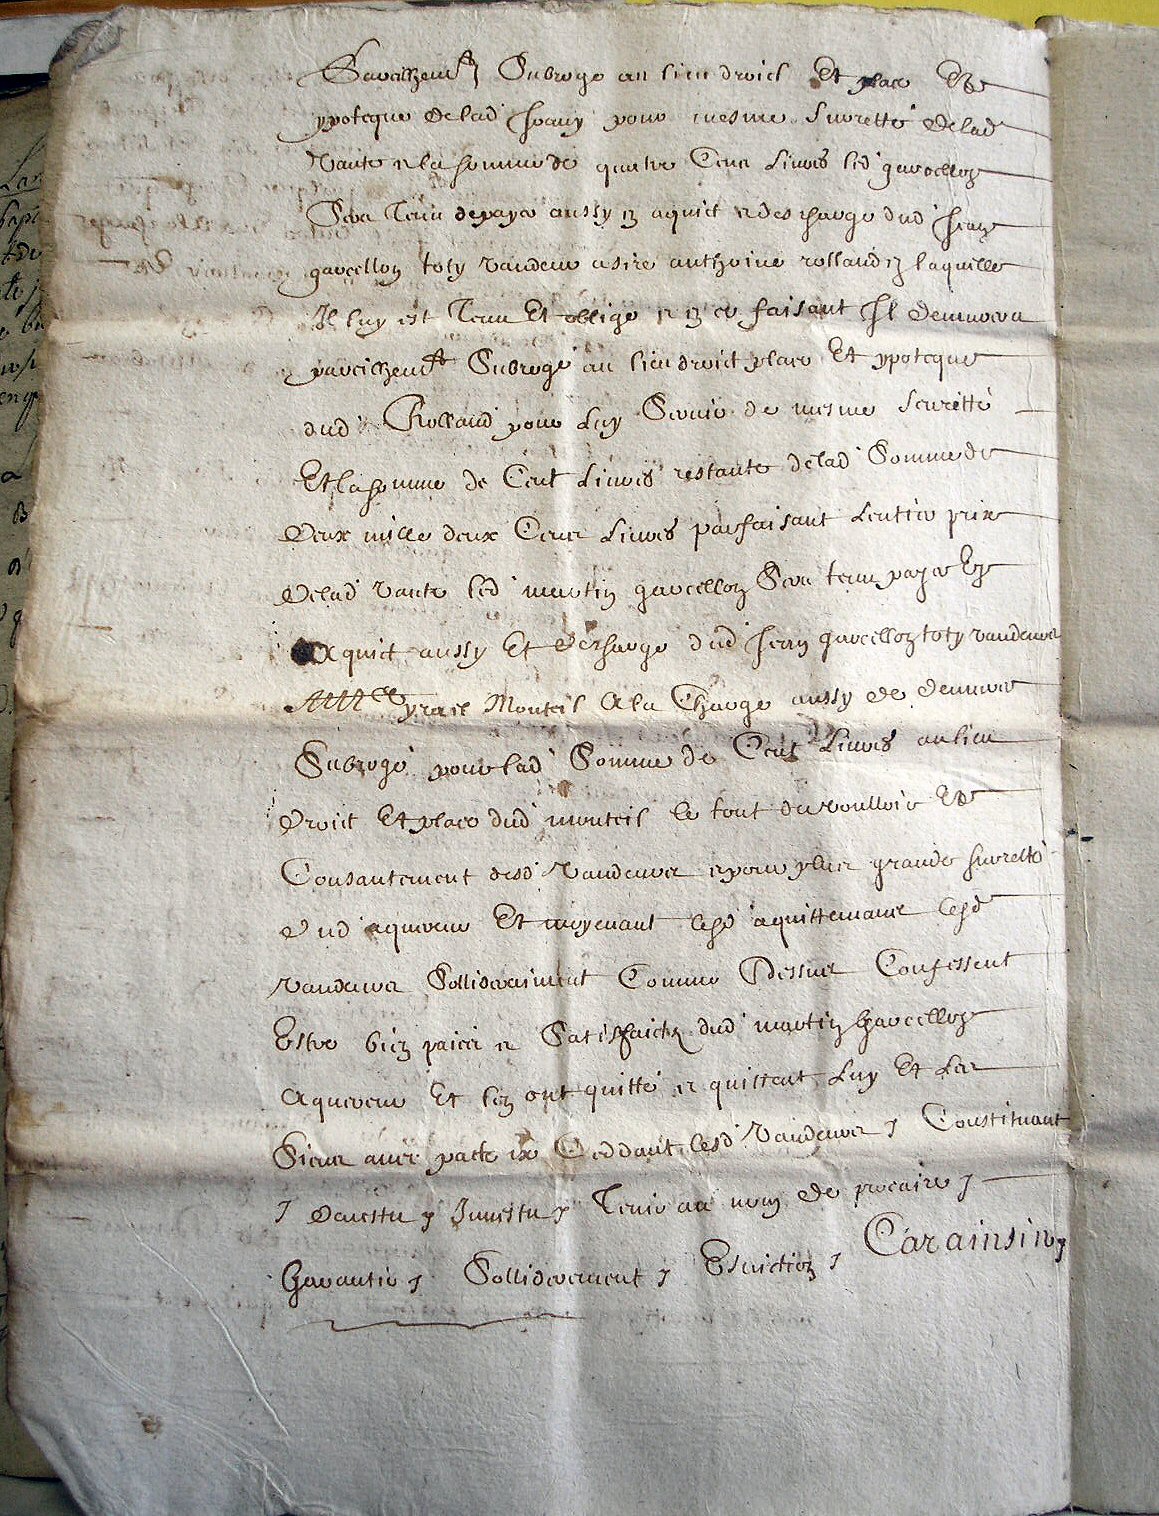 Pareilhemt Subrogé au lieu droict Et place Et
ypoteque delad Jeany pour mesme Surretté delad
vante et la somme de quatre Cens Livres led garcellon
Sera Tenu de payer aussy en aquict et descharge dud Jean
garcellon toty vandeur a sire anthoine rolland en laquelle
Il luy est Tenu Et obligé et en ce faisant Il demurera
pareilhemt Subrogé au lieu droict place Et ypoteque
dud Rolland pour Luy Servir de mesme seuretté
Et la somme de Cent Livres restante delad Somme de
Deux mille deux Cens Livres parfaisant Lentier prix
Delad vante led martin garcellon Sera tenu payer En
aquict aussy Et descharge dud Jean garcellon toty vandeur
yrail Monteil A la Charge aussy de demurer
Subrogé pour lad Somme de Cent Livres au lieu
Droict Et place dud monteil le tout du voulloir Et
Consantement desd Vandeurs et pour plus grande surretté
Dud aquereur Et moyenant lesd aquittemans lesd
vandeurs Sollidairement Comme Dessus Confessent
Estre bien paiés et Satisfaicts dud martin garcellon
Aquereur Et len ont quitté et quittent Luy Et Les
Siens avec pacte Ceddant lesd Vandeurs Constituant
Devestu Investu Tenir au nom de precaire
Garantir Sollidairement Esviction Car ainsin